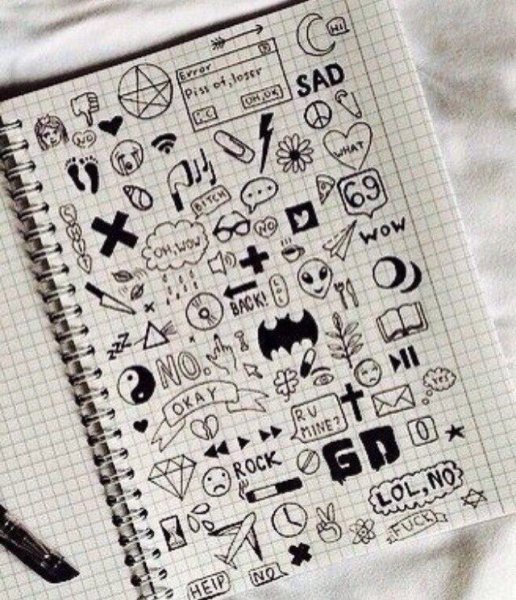 HI
Error
Piss of, loser
OH, OK
SAD
NO
WHAT
BITCH
69
NO
OH, WOW
WOW
BACK!
zzz
NO.
OKAY
yes
R U
MINE?
ROCK
GD
LOL, NO
FUCK
HELP
NO